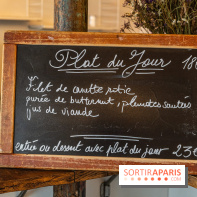 Plat du Jour 18€
Filet de canette rotie
purée de butternut, pleurotes sautées
jus de viande
entrée ou dessert avec plat du jour 23€
SORTIRAPARIS